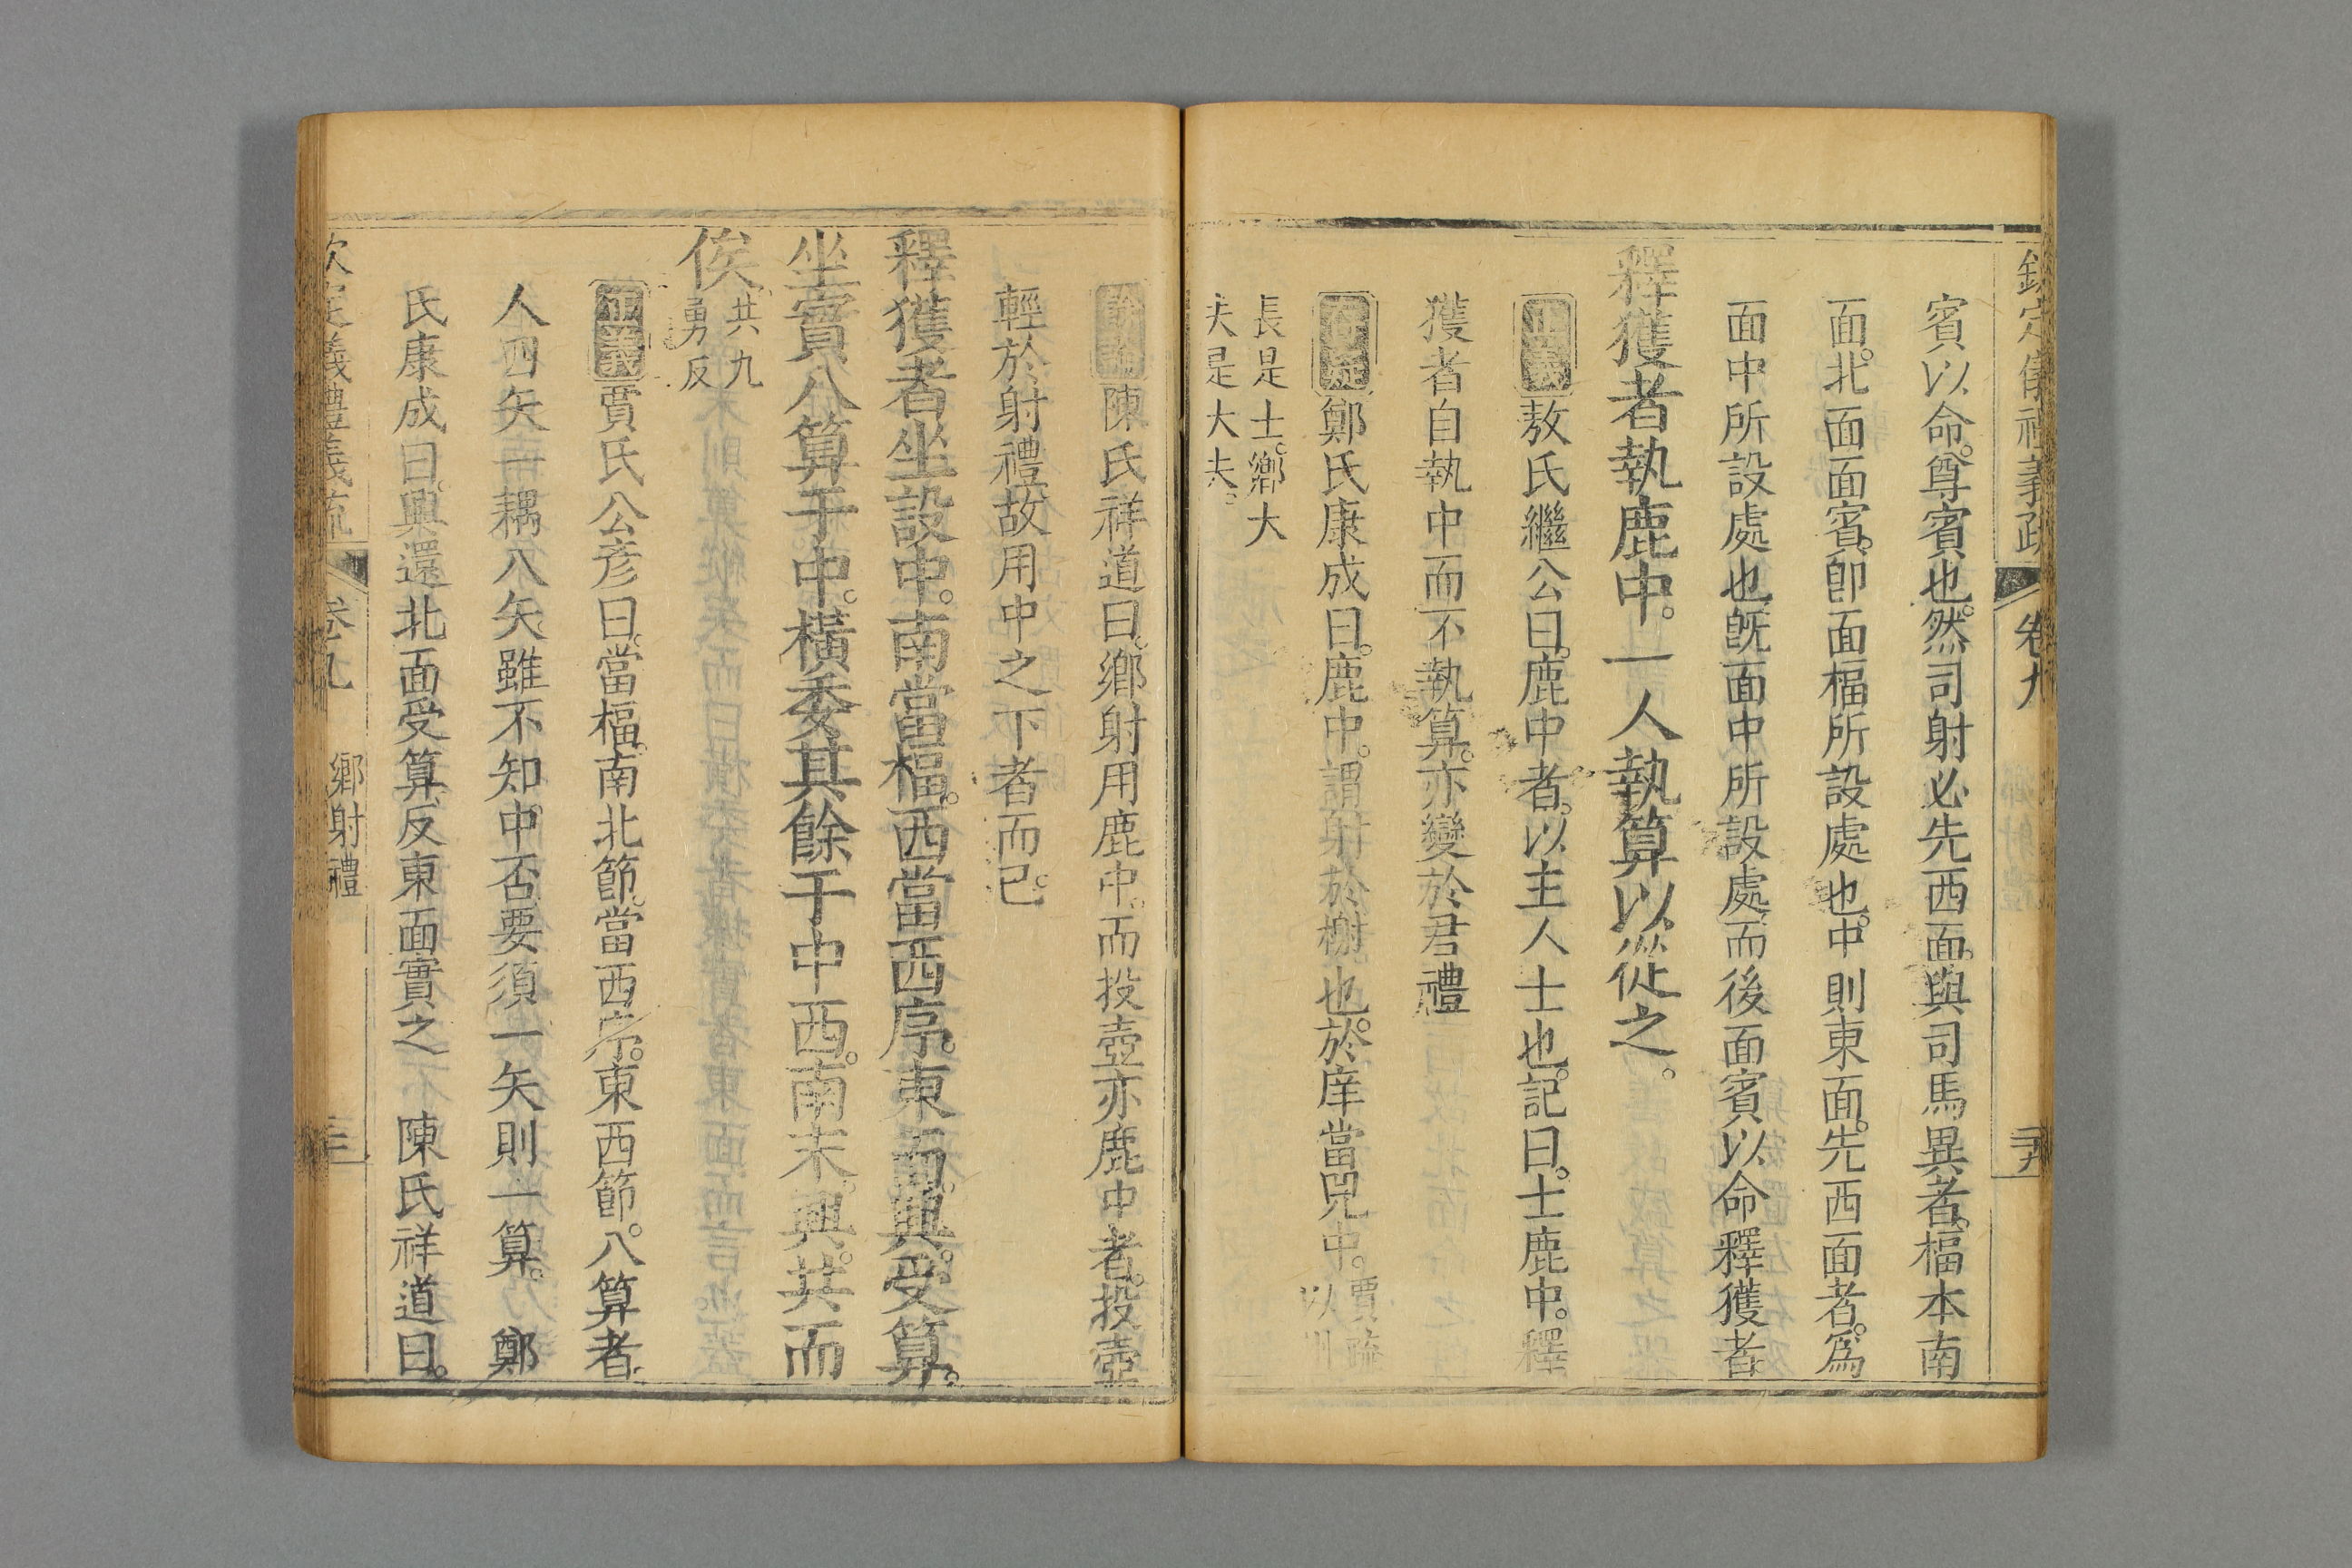 欽定儀禮義疏 卷九 鄉射禮 二十九
賓以命。尊賓也。然司射必先西面。與司馬異者。楅本南
面。北面面賓。卽面楅所設處也。中則東面。先西面者。爲
面中所設處也旣面中所設處。而後面賓以命釋獲者
釋獲者執鹿中。一人執算以從之。
正義敖氏繼公曰。鹿中者。以主人士也。記曰。士鹿中。釋
獲者自執中而不執算。亦變於君禮
存疑鄭氏康成曰。鹿中。謂射於榭也。於庠當兕中。賈疏以州
長是士。鄉大
夫是大夫。
餘論陳氏祥道曰。鄉射用鹿中。而投壺亦鹿中者。投壺
輕於射禮。故用中之下者而已。
釋獲者坐設中。南當楅。西當西序。東面。興。受算。
坐實八算于中。橫委其餘于中西。南末。興。共而
俟 共九勇反
正義賈氏公彥曰。當楅。南北節。當西序。東西節。八算者。
人四矢一耦八矢雖不知中否要須一矢則一算。 鄭
氏康成曰。興還北面受算。反東面實之 陳氏祥道曰。
欽定儀禮義疏 卷九 鄉射禮